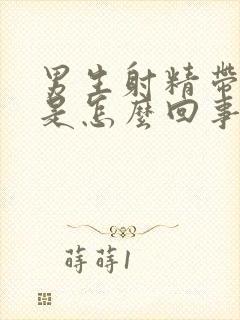 男生射精带
是怎麼回事
蒔蒔1